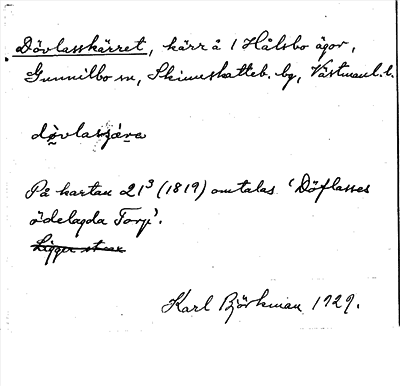 Dövlasskärret, kärr å 1 Hålsbo ägor,
Gunnilbo sn, Skinnskatteb. bg, Västmanl. l.
På kartan 21³ (1819) omtalas 'Döflasses
ödelagda Torp'.
Ligger
Karl Björkman 1929.